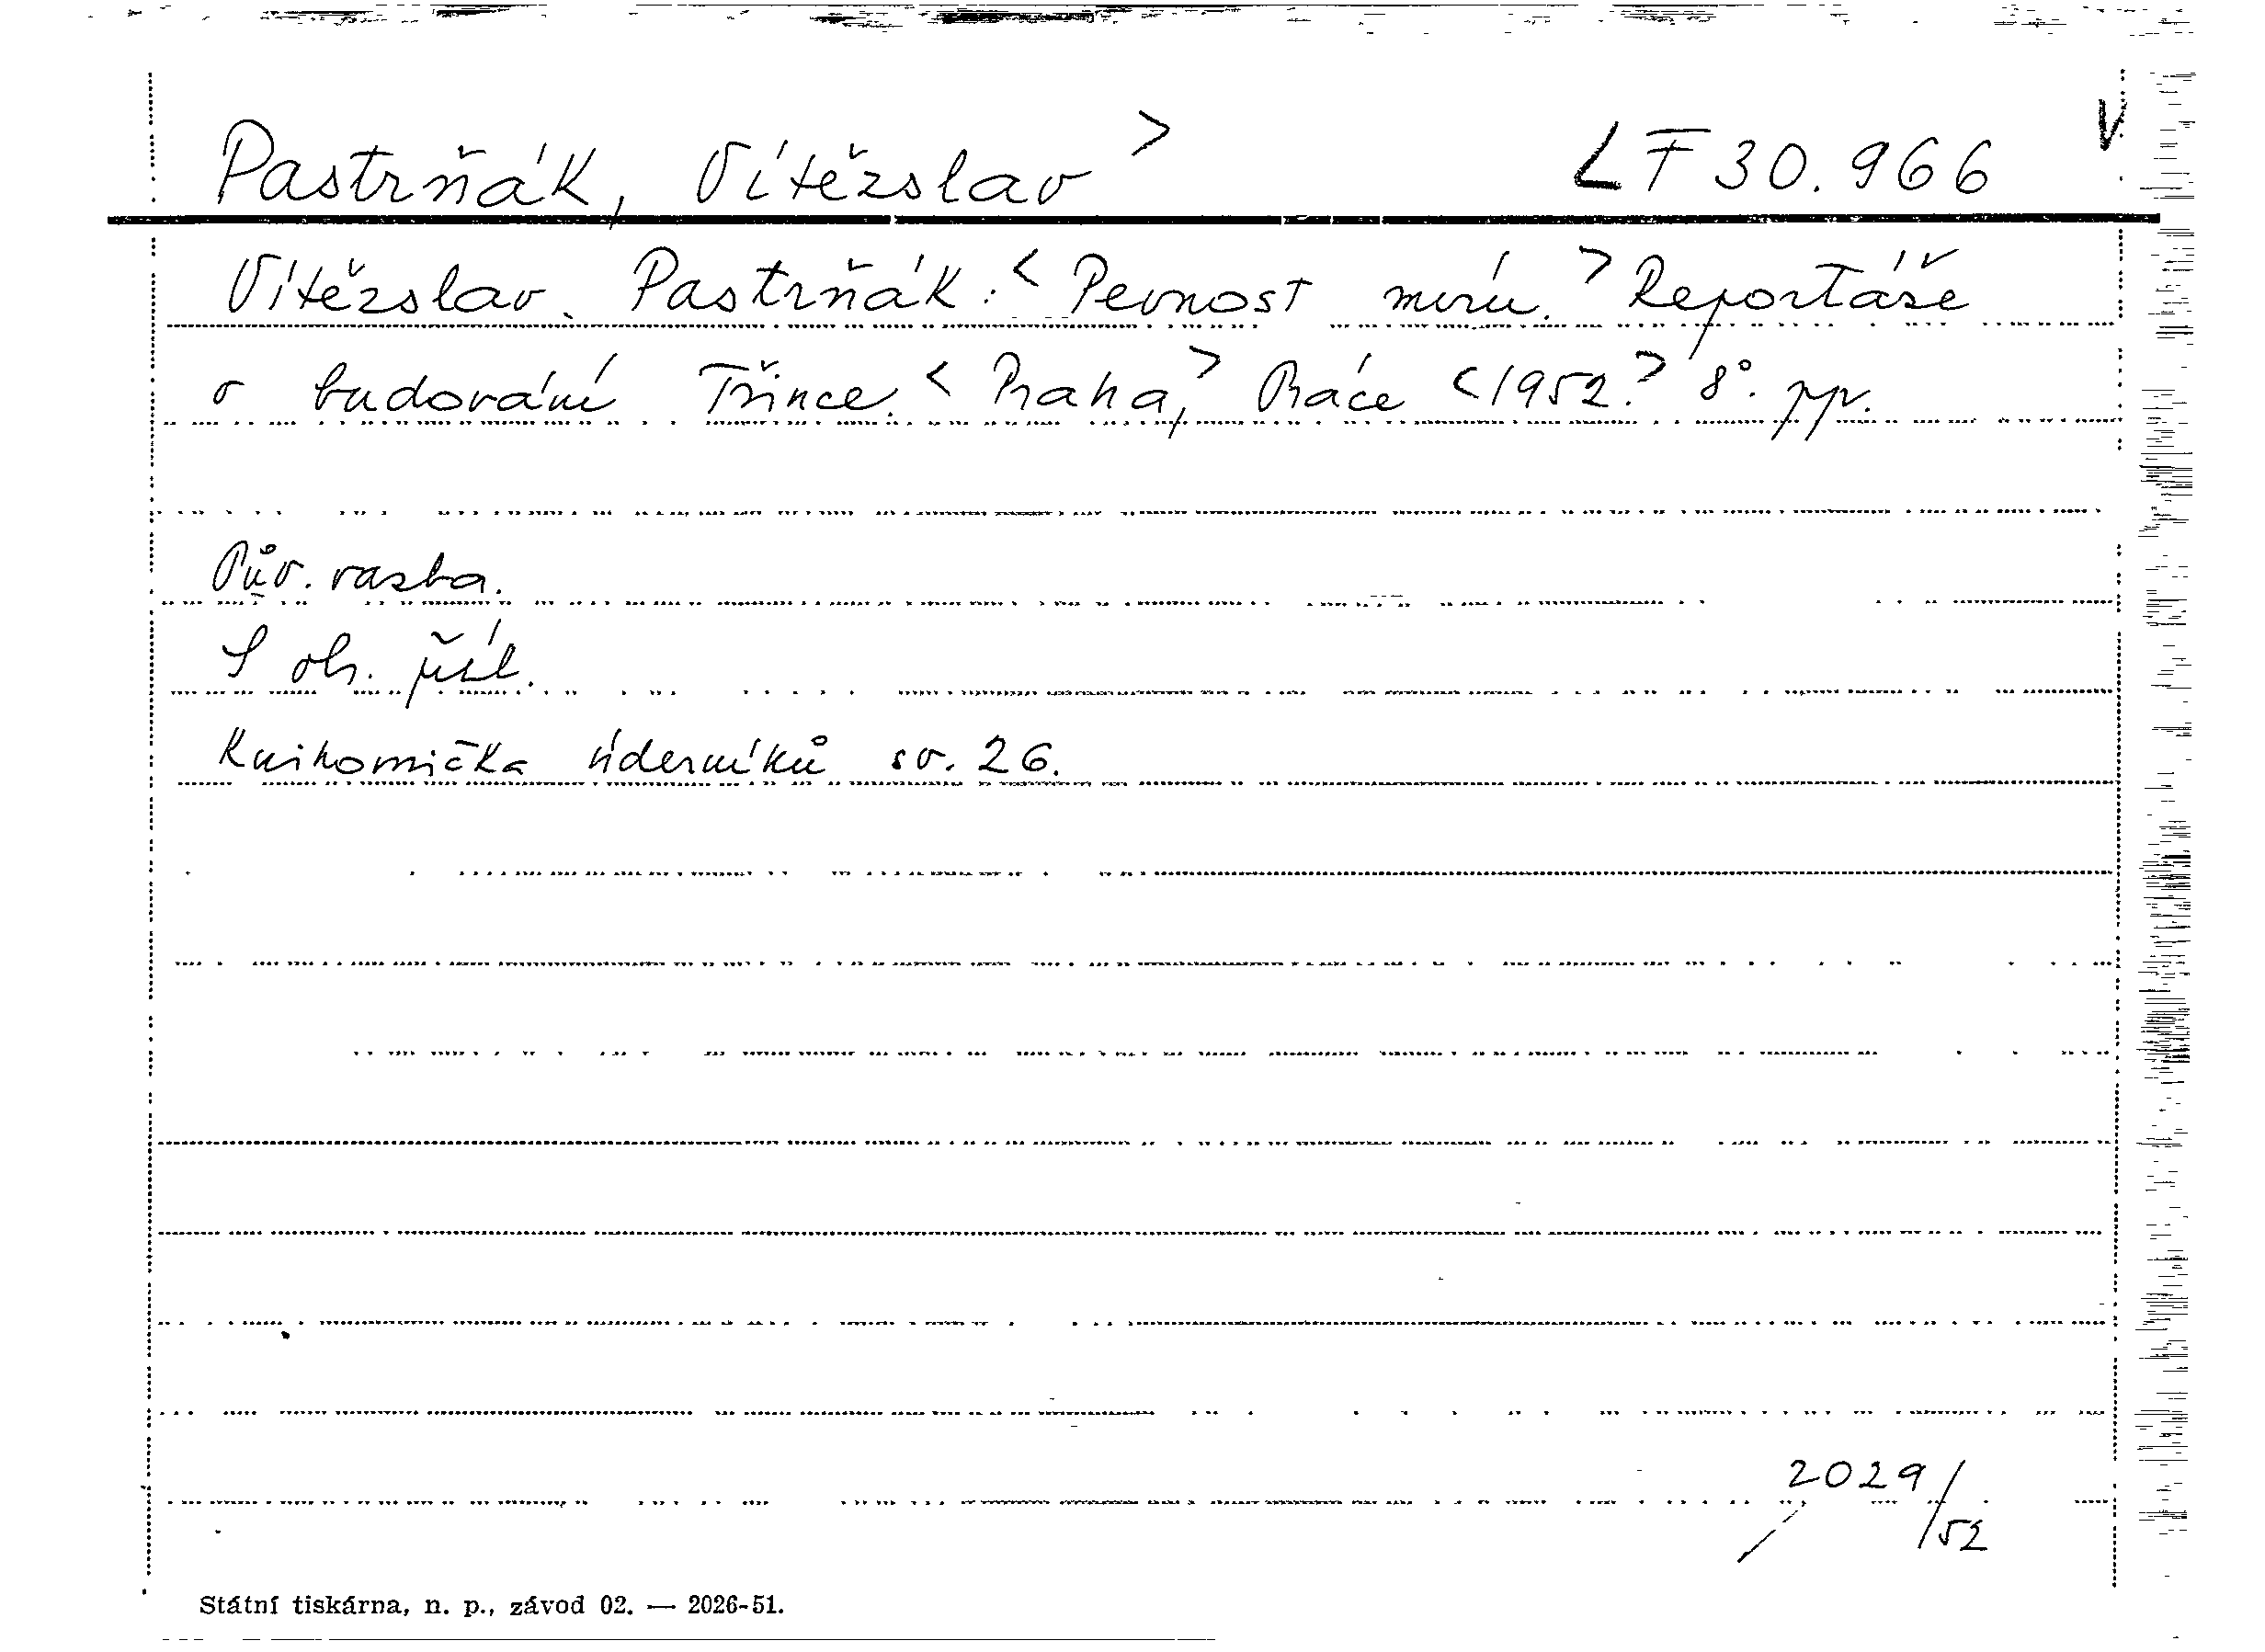 Pastrňák, Vítězslav > LF 30.966 V
Vítězslav Pastrňák: < Pevnost míru. > Reportáže
o budování Třince. < Praha, > Práce < 1952. > 8°. pp.
Pův. vazba.
S obr. příl.
Knihovnička úderníků sv. 26.
2029/52
Státní tiskárna, n. p., závod 02. — 2026-51.